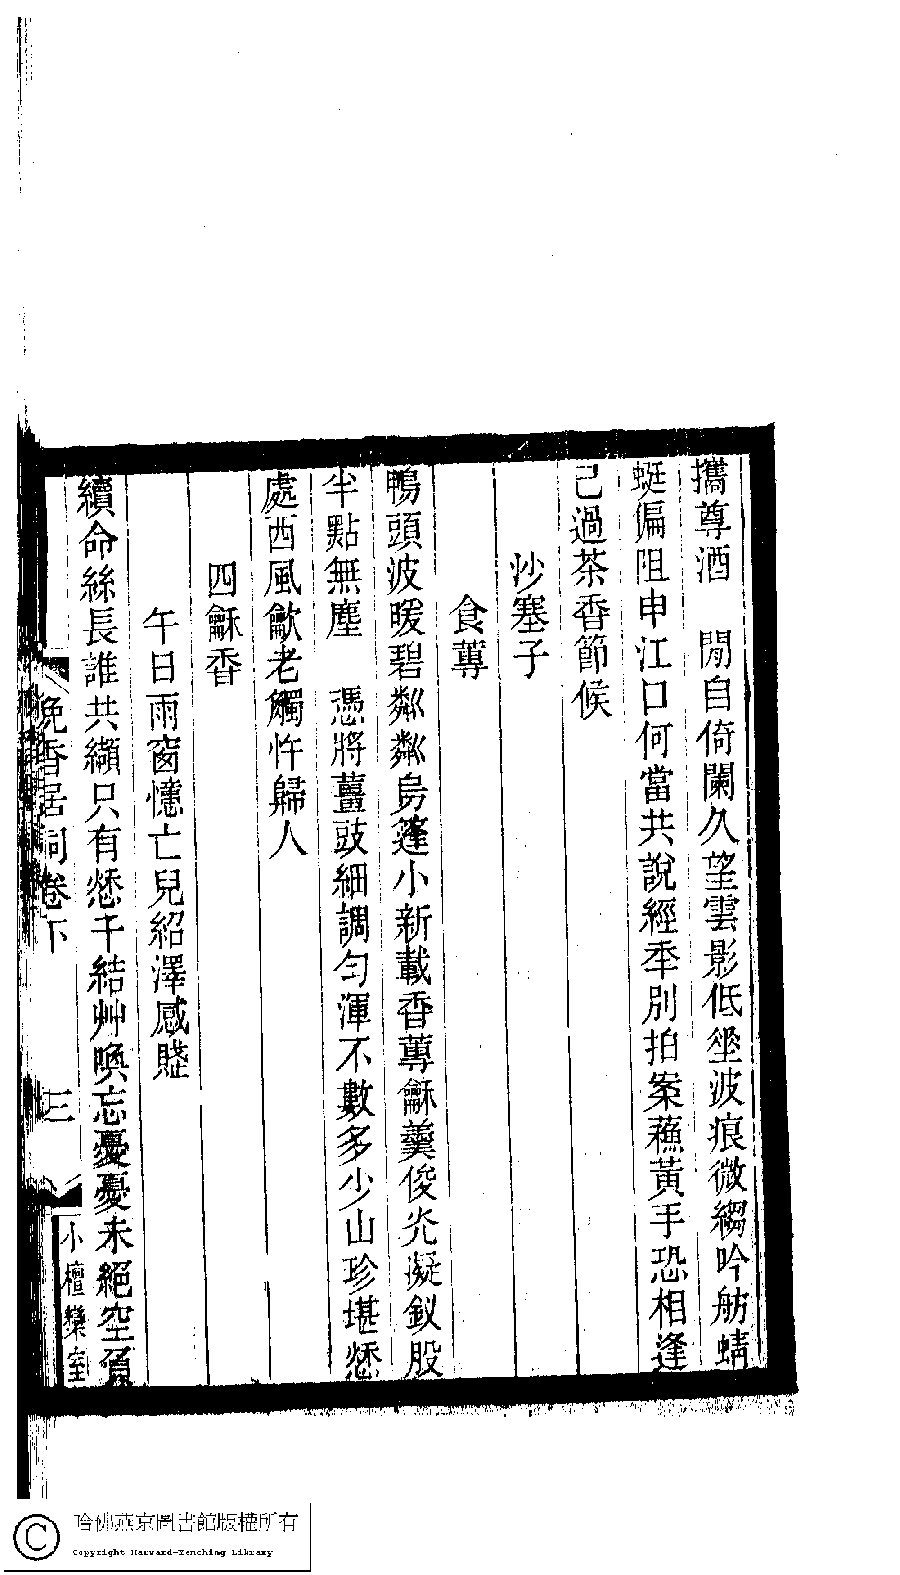 攜尊酒　閒自倚闌久望雲影低坐波痕微縐吟舫蜻
蜓偏阻申江口何當共說經年別拍案蘸黃手恐相逢
已過茶香節候
沙塞子
食蓴
鴨頭波暖碧粼粼烏蓬小新載香蓴龢羹俊光凝釵股
半點無塵　憑將薑豉細調勻渾不數多少山珍堪愁
處西風歙老觸忤歸人
四龢香
午日雨窗憶亡兒紹澤感賤
續命絲長誰共纈只有愁千結艸喚忘憂憂未絕空負
晚香居詞卷下
三
小檀欒室
哈佛燕京圖書館版權所有
Copyright Harvard-Yenching Library